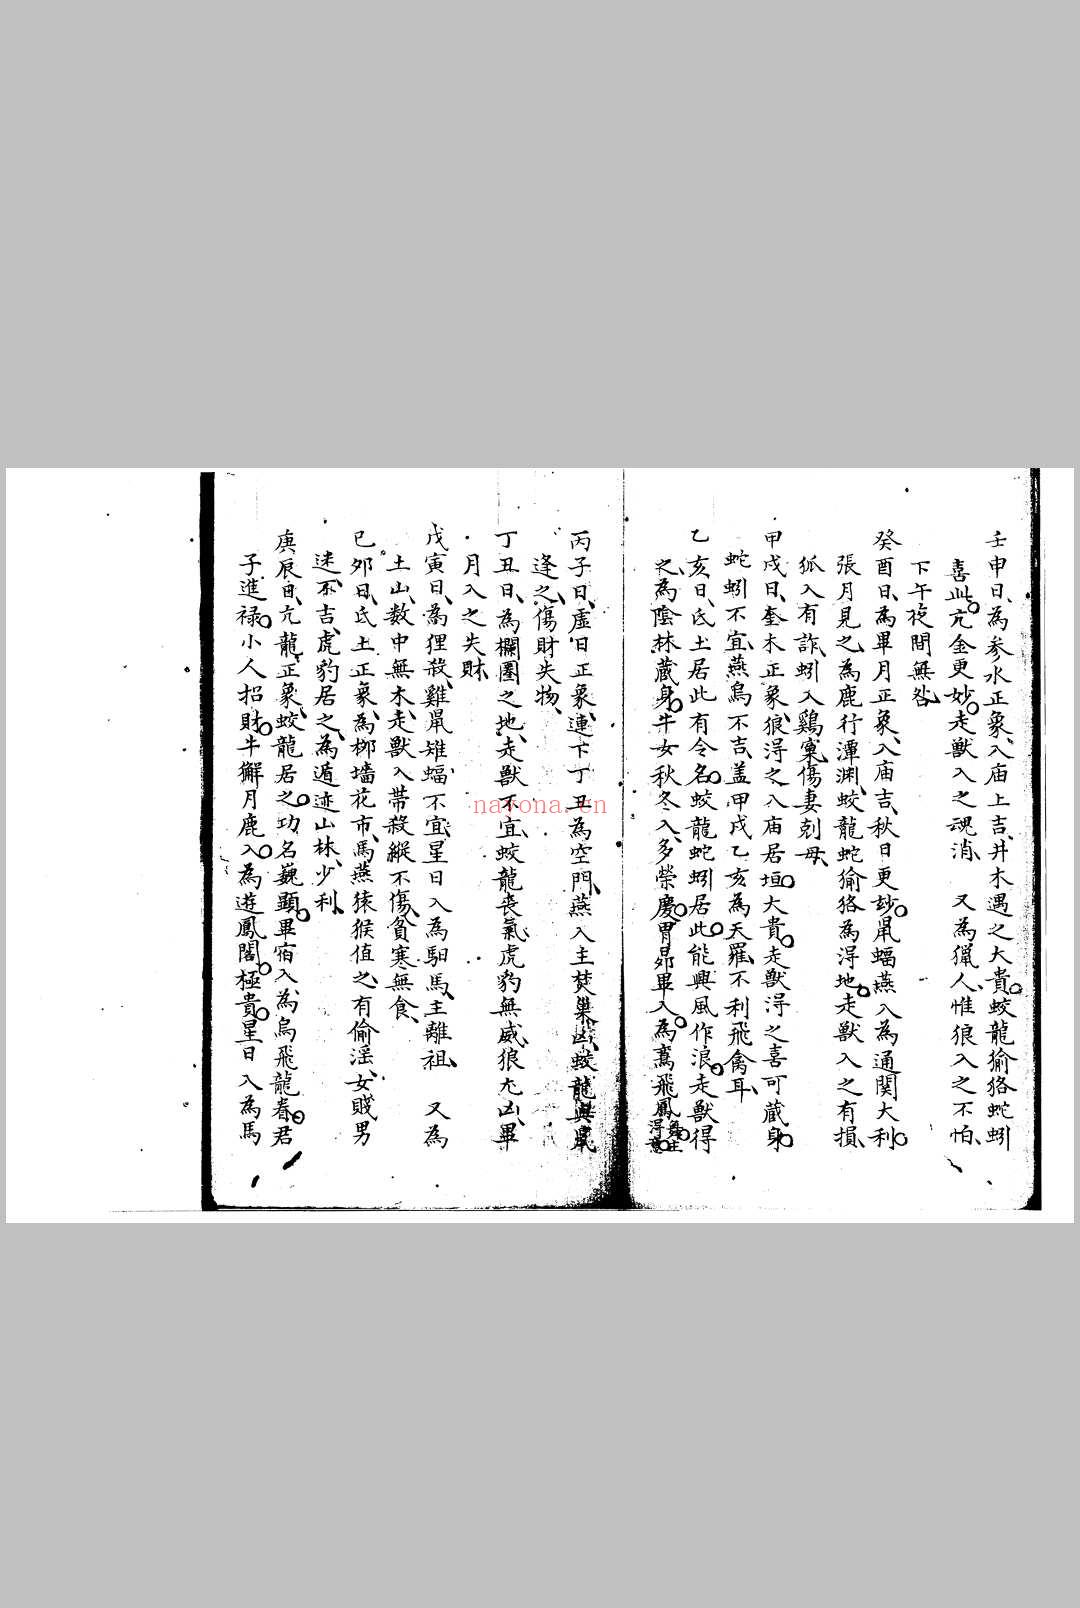 壬申日、為参水正象、入庙上吉、井木遇之大貴。蛟龍狳狢蛇蚓
喜此。亢金更妙。走獸入之魂消、又為猟人、惟狼入之不怕、
下午夜間無咎、
癸酉日、為畢月正象、入庙吉、秋日更玅。鼠蝠燕入為通関大利。
張月見之、為鹿行潭渊、蛟龍蛇狳狢為淂地。走獸入之有損、
狐入有詐、蚓入鷄窠、傷妻剋母、
甲戌日、奎木正象、狼淂之入庙居垣。大貴。走獸淂之喜可蔵身。
蛇蚓不宜、燕烏不吉、盖甲戌乙亥為天羅、不利飛禽耳、
乙亥日、氐土居此有令名。蛟龍蛇蚓居此。能興風作浪。走獸得
之、為陰林蔵身。牛女秋冬入、多榮慶。胃昴畢入、為鸞飛鳳
淂意。
丙子日、虛日正象、連下丁丑為空門、燕入主焚巢凶、蛟龍與鼠
逢之、傷財失物、
丁丑日、為欄圏之地、走獸不宜、蛟龍喪氣、虎豹無威、狼尤凶、畢
月入之失財、
戊寅日、為狸殺、雞鼠雉蝠不宜、星日入為馹馬、主離祖、又為
土山、数中無木、走獸入帯殺、縱不傷、貧寒無食、
已夘日、氐土正象、為柳墻花市、馬燕猿猴值之、有偷滛、女賤男
迷不吉、虎豹居之、為遁迹山林、少利、
庚辰日、亢龍正象、蛟龍居之。功名巍顯。畢宿入為烏飛龍春。君
子進禄。小人招財。牛獬月鹿入。為遊鳳閣。極貴。星日入為馬
navona.cn